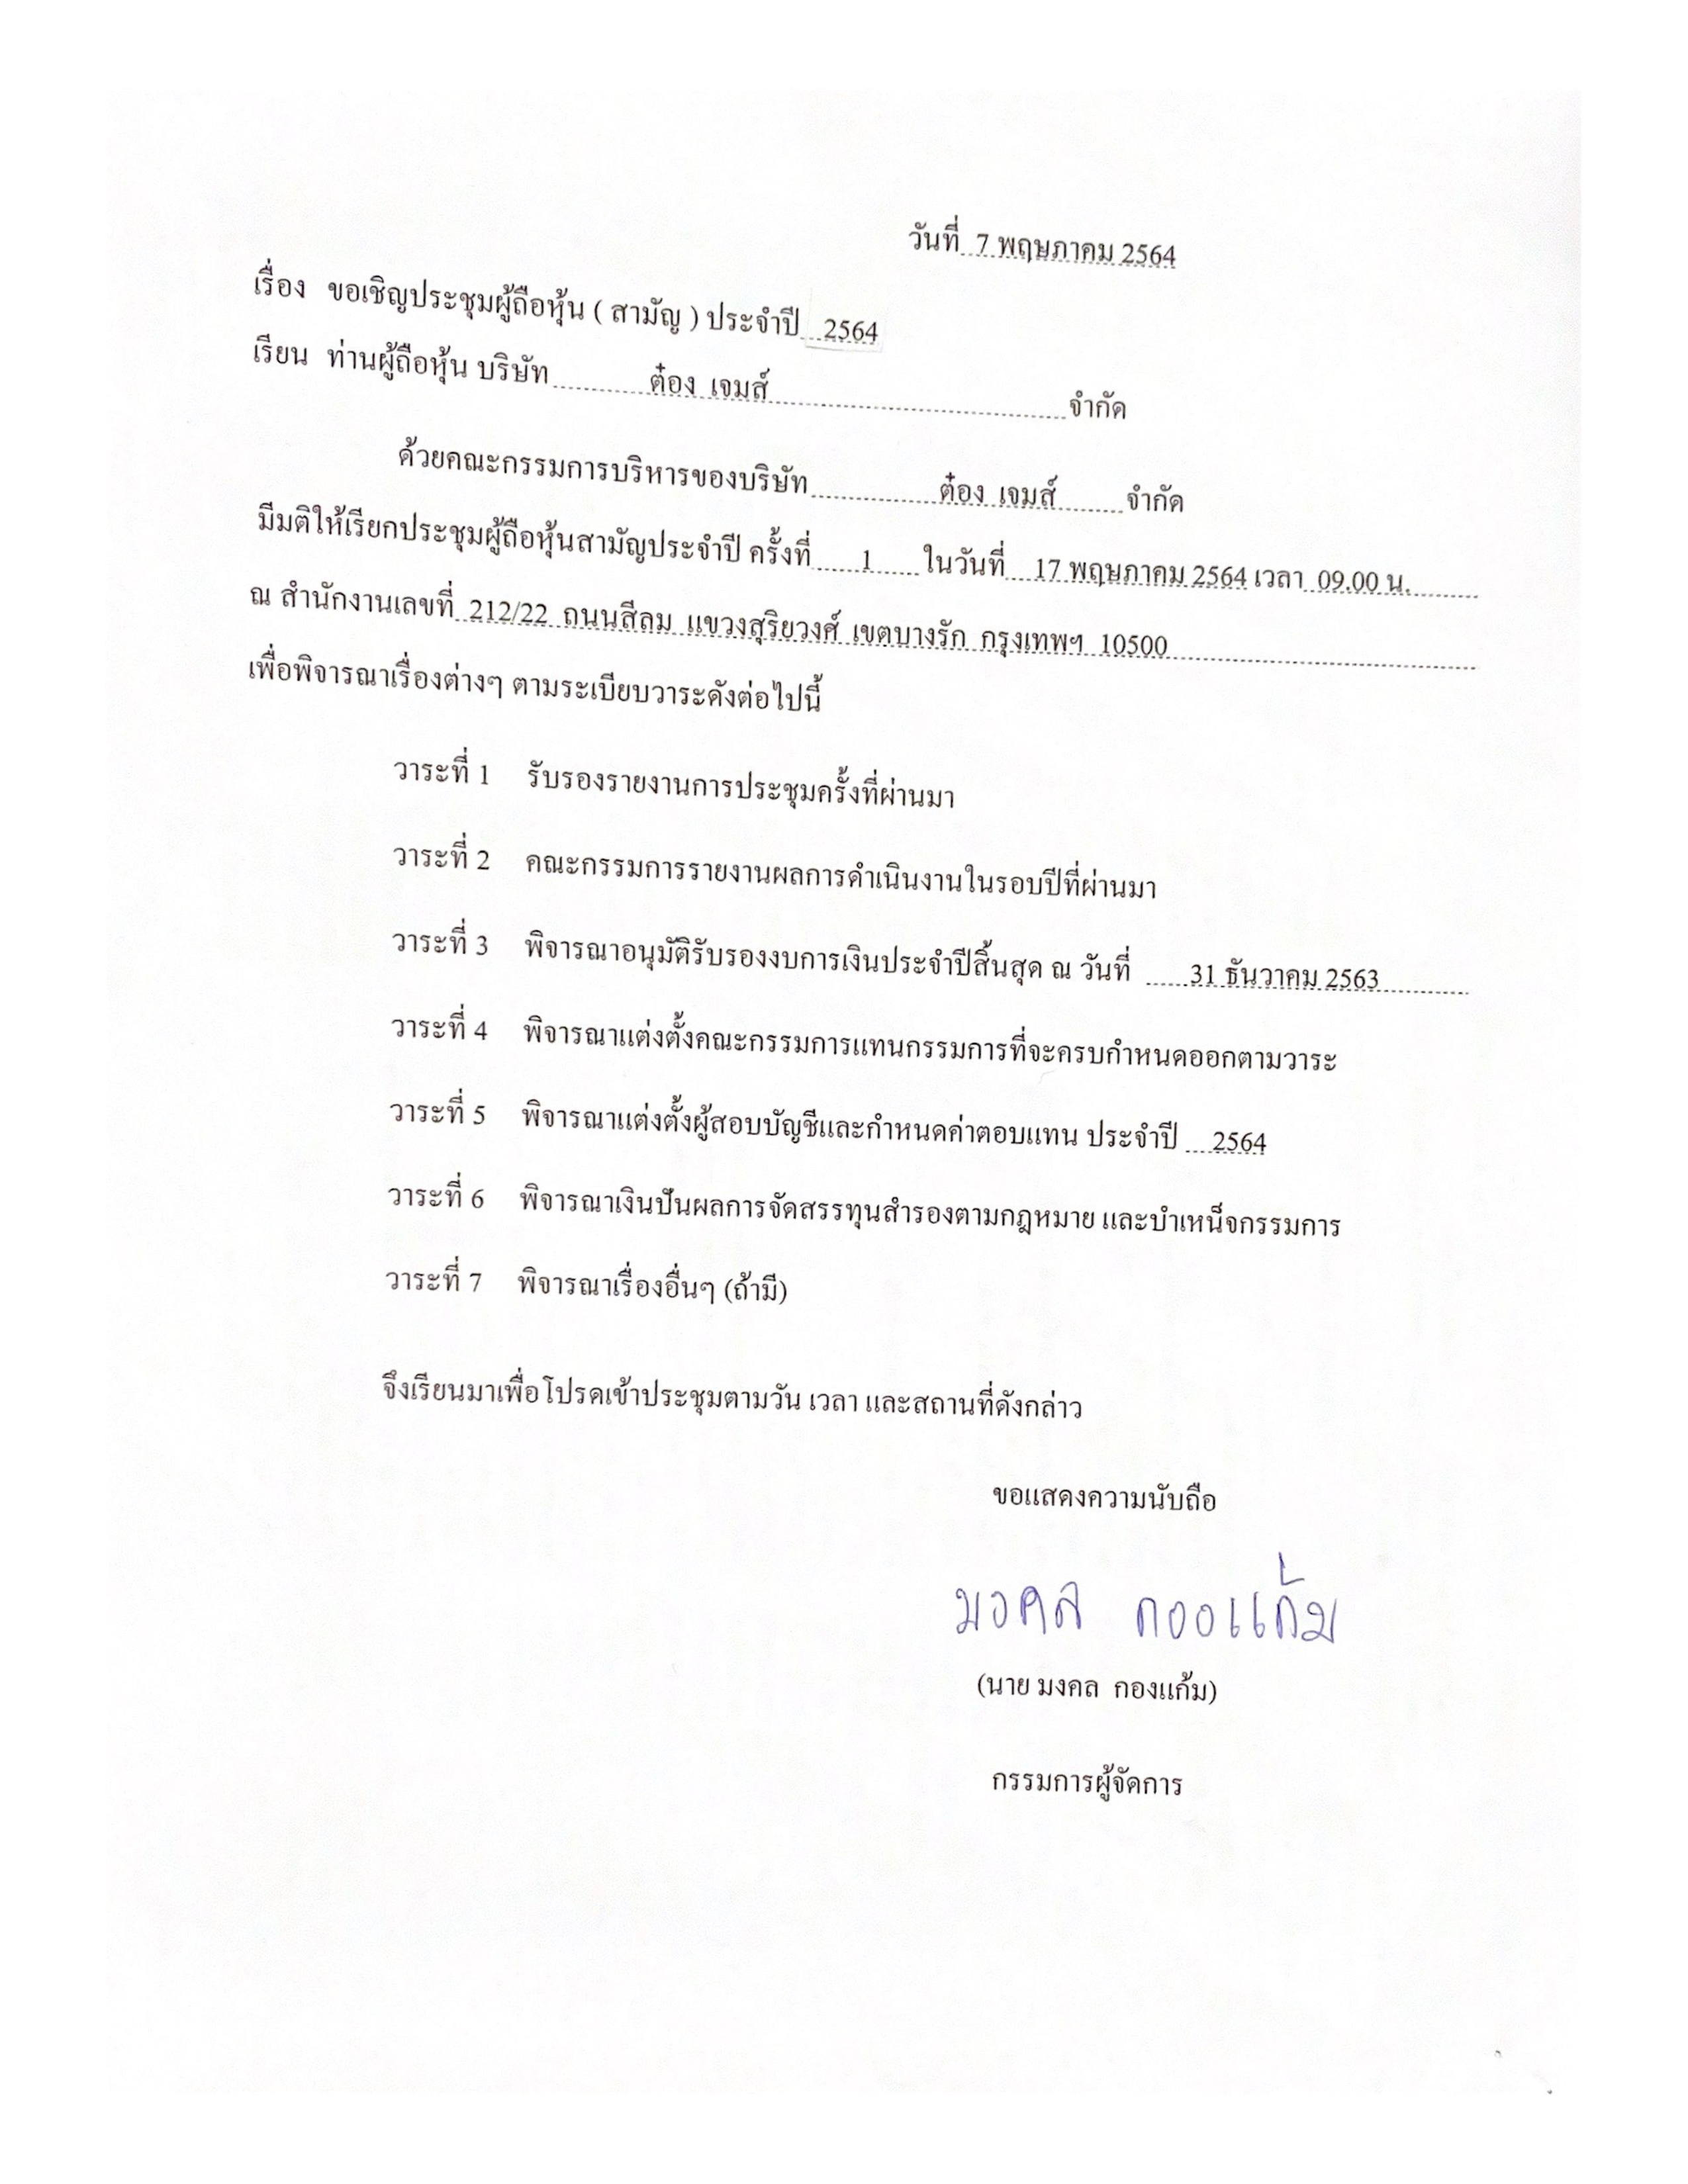 วันที่ 7 พฤษภาคม 2564
เรื่อง ขอเชิญประชุมผู้ถือหุ้น ( สามัญ ) ประจำปี 2564
เรียน ท่านผู้ถือหุ้น บริษัท ต๋อง เจมส์ จำกัด
ด้วยคณะกรรมการบริหารของบริษัท ต๋อง เจมส์ จำกัด
มีมติให้เรียกประชุมผู้ถือหุ้นสามัญประจำปี ครั้งที่ 1 ในวันที่ 17 พฤษภาคม 2564 เวลา 09.00 น.
ณ สำนักงานเลขที่ 212/22 ถนนสีลม แขวงสุริยวงศ์ เขตบางรัก กรุงเทพฯ 10500
เพื่อพิจารณาเรื่องต่างๆ ตามระเบียบวาระดังต่อไปนี้
วาระที่ 1 รับรองรายงานการประชุมครั้งที่ผ่านมา
วาระที่ 2 คณะกรรมการรายงานผลการดำเนินงานในรอบปีที่ผ่านมา
วาระที่ 3 พิจารณาอนุมัติรับรองงบการเงินประจำปีสิ้นสุด ณ วันที่ 31 ธันวาคม 2563
วาระที่ 4 พิจารณาแต่งตั้งคณะกรรมการแทนกรรมการที่จะครบกำหนดออกตามวาระ
วาระที่ 5 พิจารณาแต่งตั้งผู้สอบบัญชีและกำหนดค่าตอบแทน ประจำปี 2564
วาระที่ 6 พิจารณาเงินปันผลการจัดสรรทุนสำรองตามกฎหมาย และบำเหน็จกรรมการ
วาระที่ 7 พิจารณาเรื่องอื่นๆ (ถ้ามี)
จึงเรียนมาเพื่อโปรดเข้าประชุมตามวัน เวลา และสถานที่ดังกล่าว
ขอแสดงความนับถือ
มงคล กองแก้ม
(นาย มงคล กองแก้ม)
กรรมการผู้จัดการ